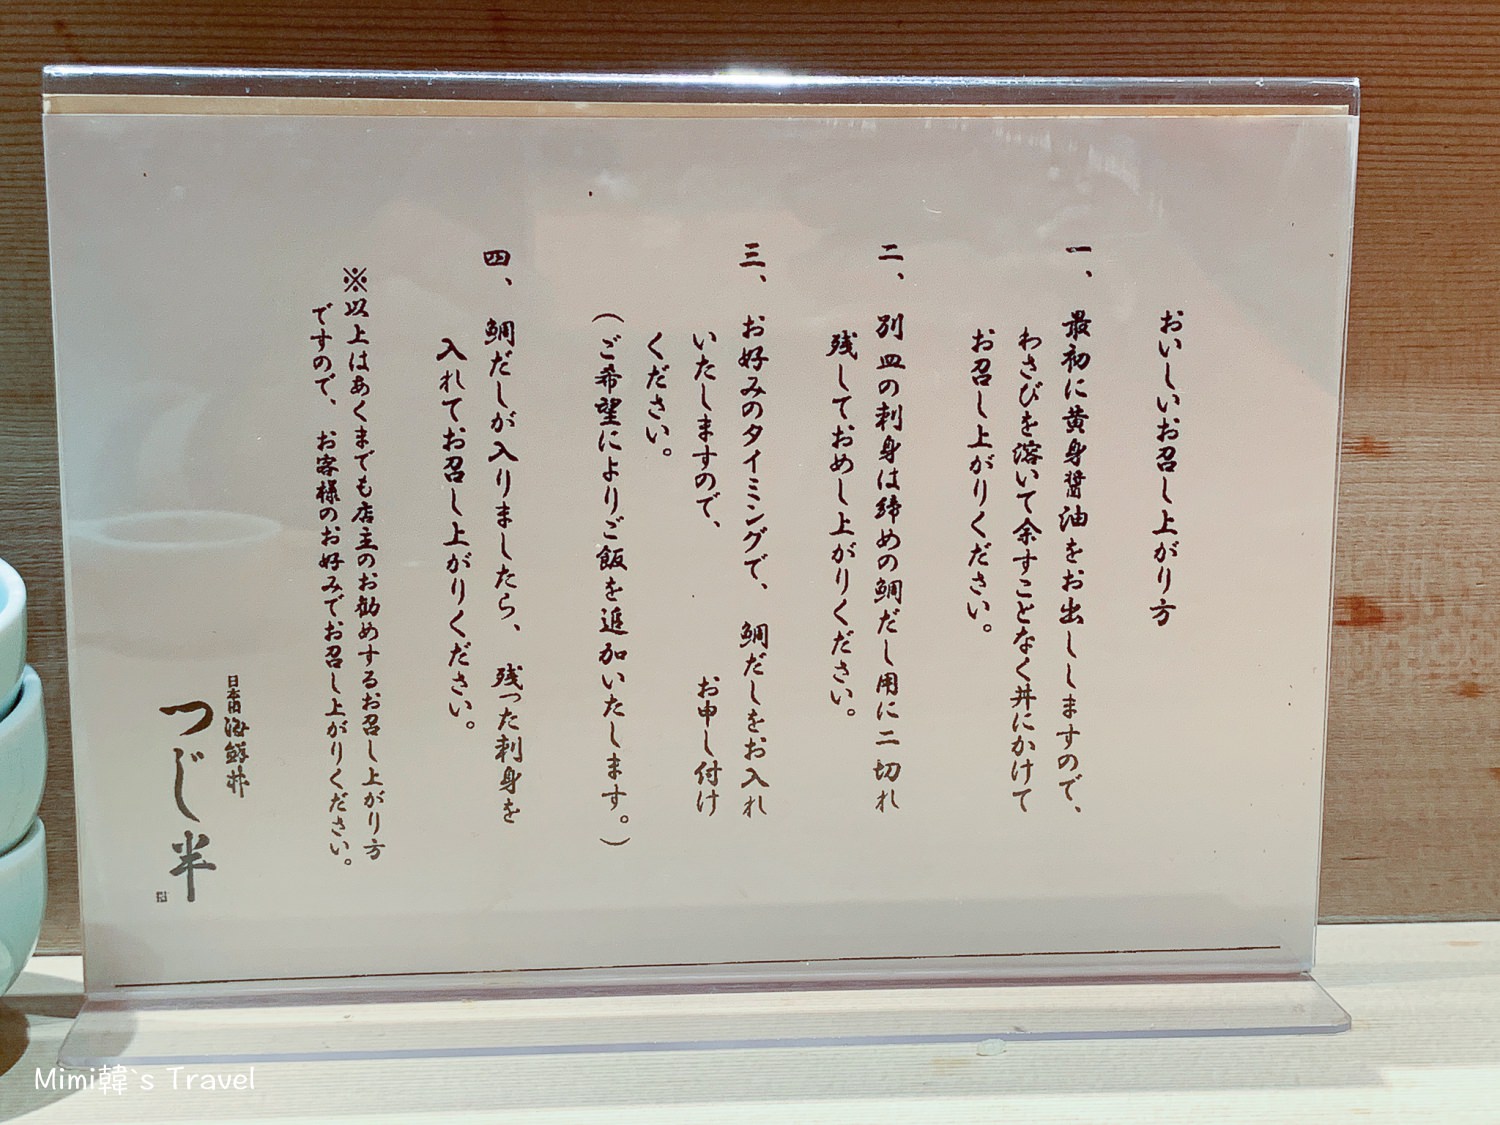 おいしいお召し上がり方
一、最初に黄身醤油をお出ししますので、
わさびを溶いて余すことなく丼にかけて
お召し上がりください。
二、別皿の刺身は締めの鯛だし用に二切れ
残しておめし上がりください。
三、お好みのタイミングで、鯛だしをお入れ
いたしますので、お申し付け
ください。
（ご希望によりご飯を追加いたします。）
四、鯛だしが入りましたら、残った刺身を
入れてお召し上がりください。
※以上はあくまでも店主のお勧めするお召し上がり方
ですので、お客様のお好みでお召し上がりください。
日本橋海鮮丼
つじ半
Mimi韓`s Travel